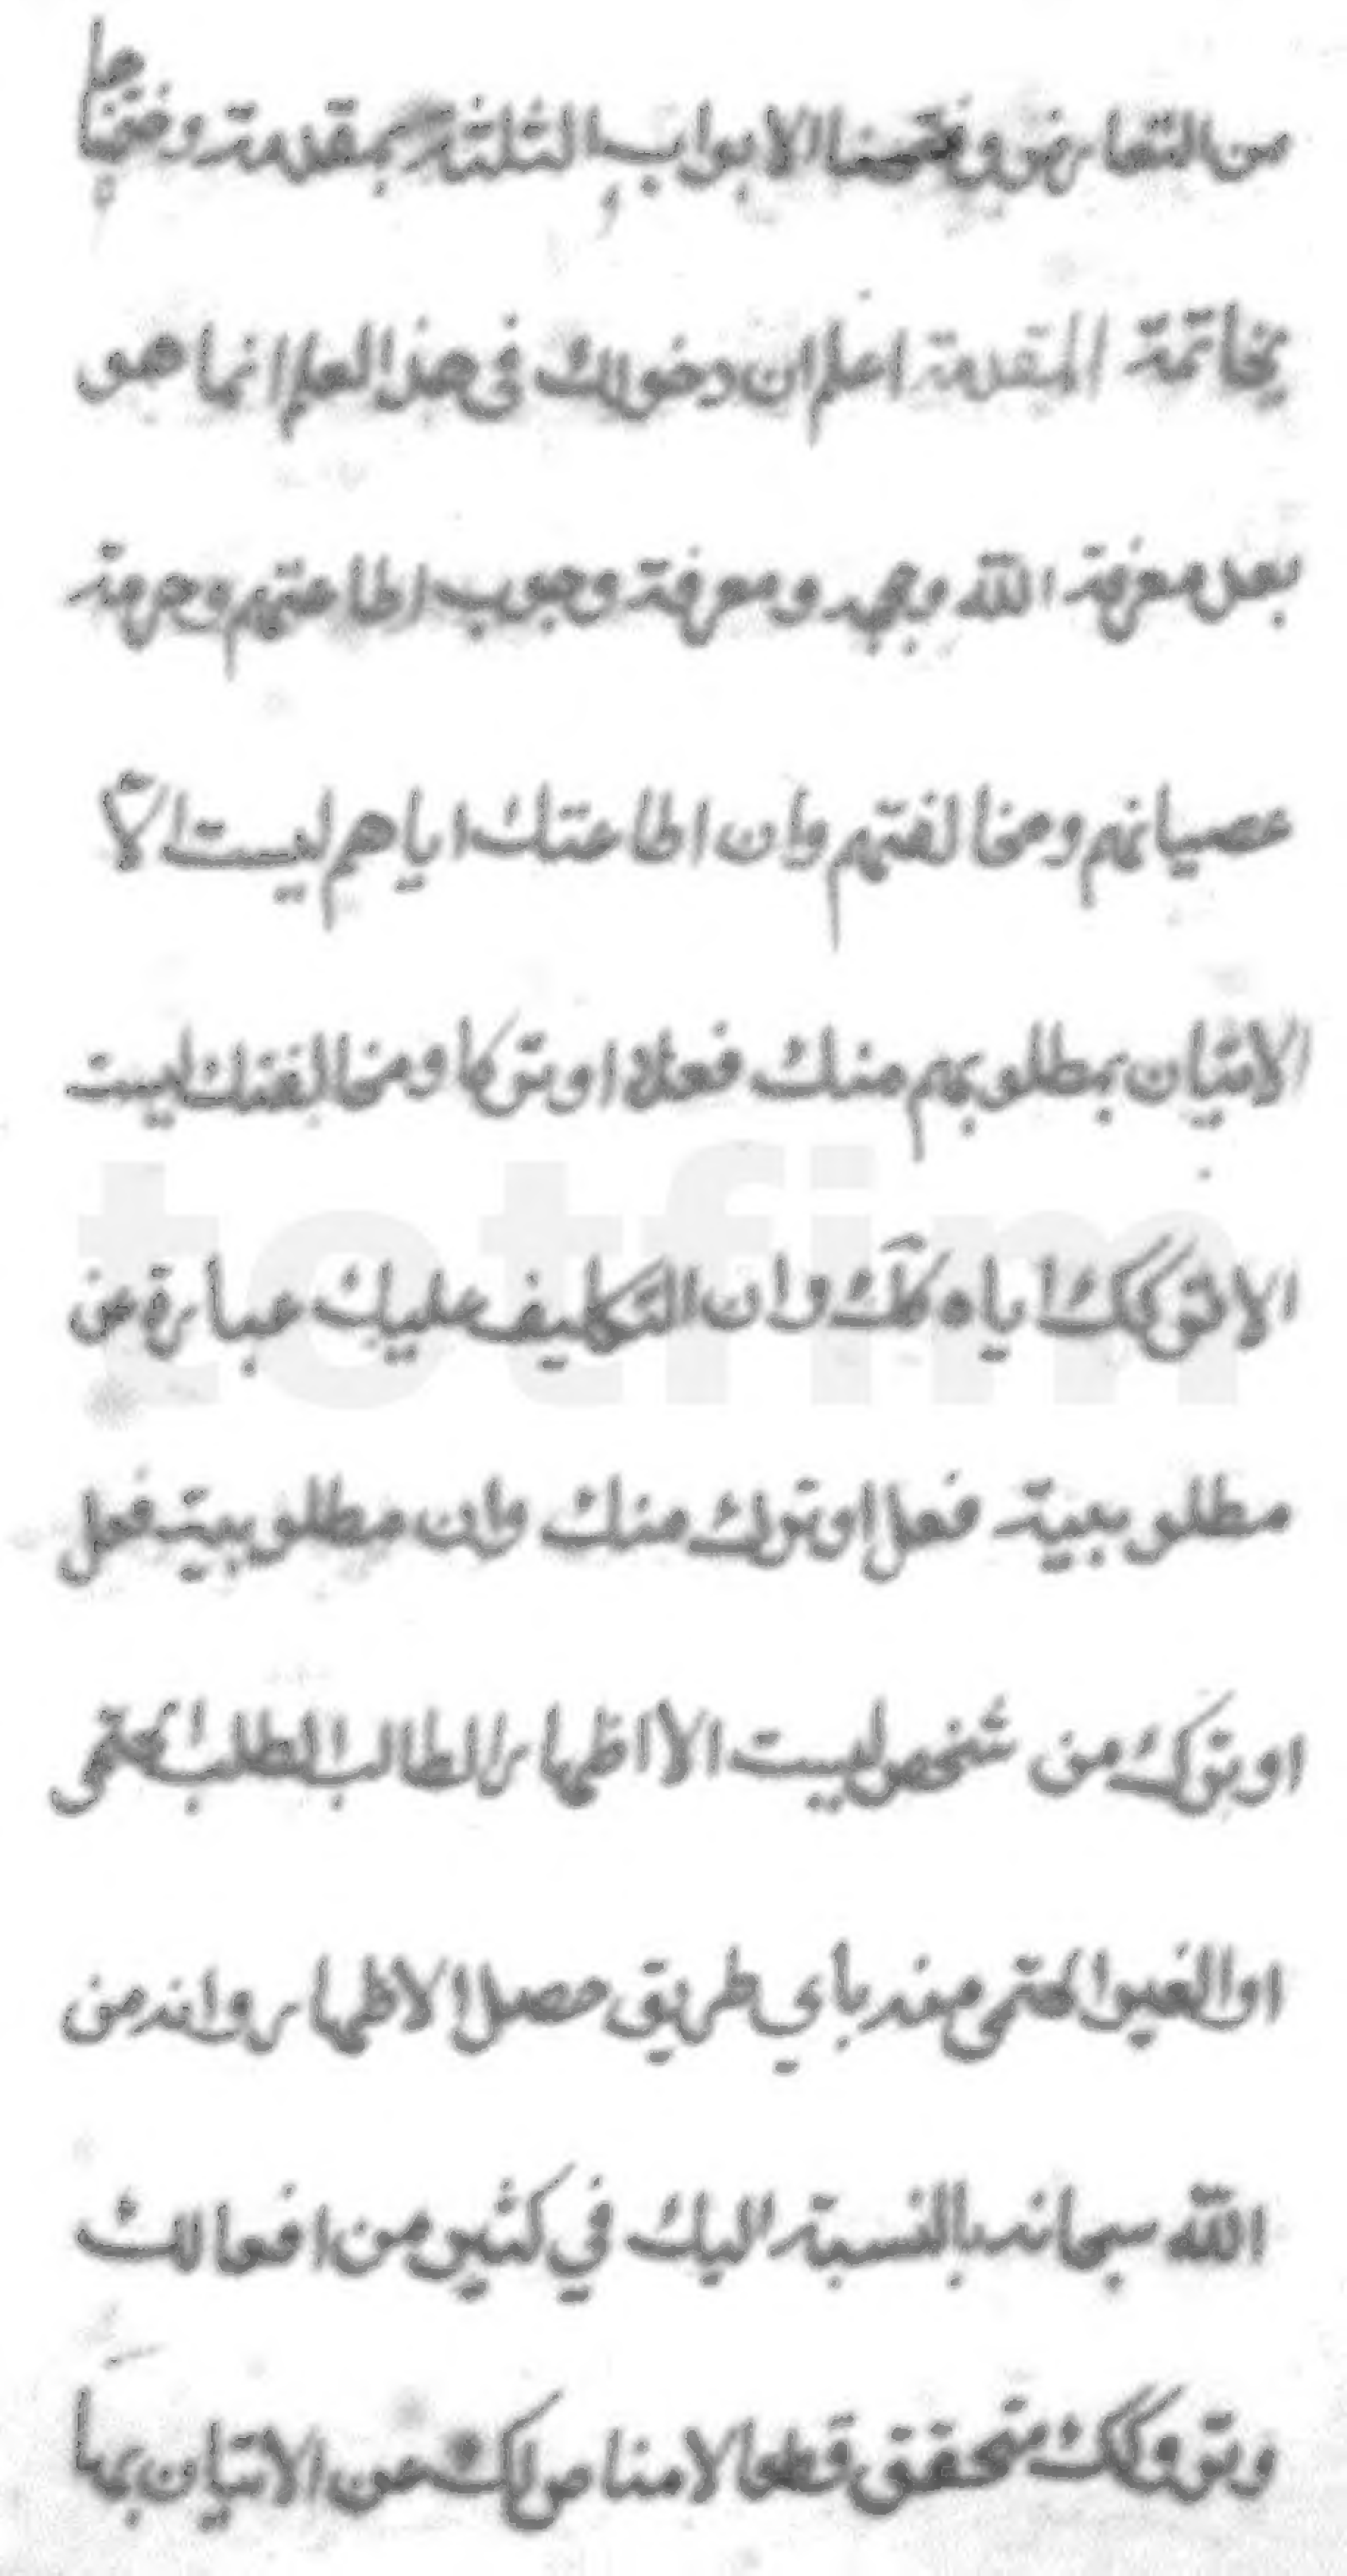 من التعارض وفتحنا الابواب الثلثة بمقدمة وختمناها
بخاتمة المقدمة اعلم ان دخولك في هذا العلم انما هو
بعد معرفة الله وحججه ومعرفة وجوب اطاعتهم وحرمة
عصيانهم ومخالفتهم وان اطاعتك اياهم ليست الا
الاتيان بمطلوبهم منك فعلا او تركا ومخالفتك ليست
الا تركك اياه كك وان التكليف عليك عبارة عن
مطلوبية فعل او ترك منك وان مطلوبية فعل
او ترك من شخص ليست الا اظهار الطالب الطلب الحتمي
او الغير الحتمي منه بأي طريق حصل الاظهار وانه من
الله سبحانه بالنسبة اليك في كثير من افعالك
وتروكك متحقق قطعا لا مناص لك عن الاتيان بها
totfim